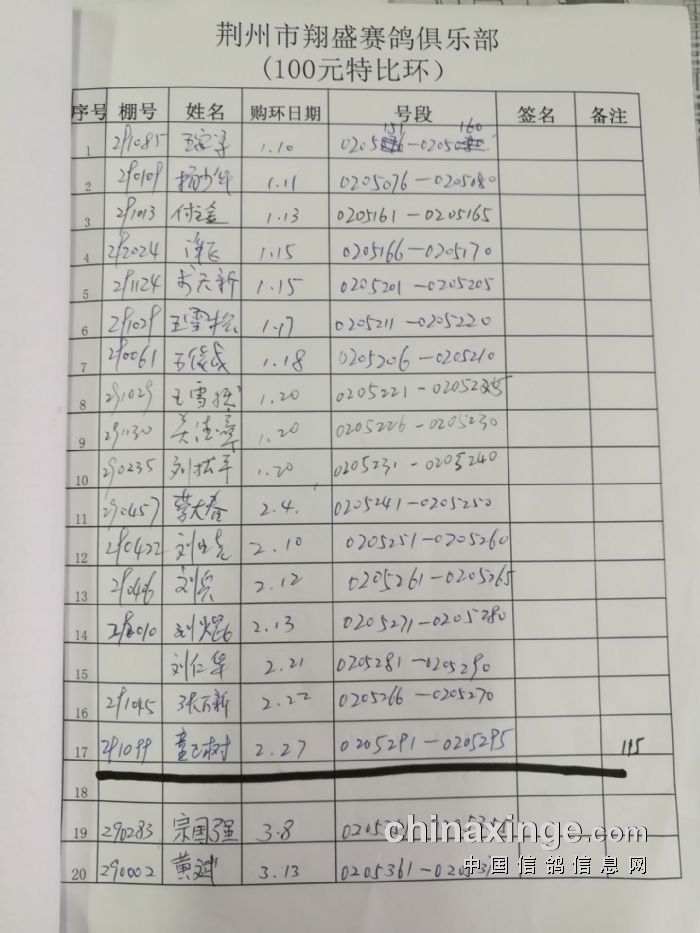 荆州市翔盛赛鸽俱乐部
(100元特比环)
序号 棚号 姓名 购环日期 号段 签名 备注
1 291085 1.10 151 160 0205 -0205
2 290109 1.11 0205076-0205080
3 291013 付之金 1.13 0205161-0205165
4 292024 1.15 0205166-0205170
5 291124 1.15 0205201-0205205
6 291029 王雪松 1.17 0205211-0205220
7 290061 1.18 0205206-0205210
8 291029 王雪松 1.20 0205221-02052
9 291130 1.20 0205226-0205230
10 290235 刘松平 1.20 0205231-0205240
11 290457 2.4. 0205241-0205250
12 290422 刘 2.10 0205251-0205260
13 刘兵 2.12 0205261-0205265
14 刘焜 2.13 0205271-0205280
15 刘仁华 2.21 0205281-0205290
16 291045 张万新 2.22 0205266-0205270
17 291099 童 树 2.27 0205291-0205295 115
18
19 290283 宗国强 3.8
20 290002 黄斌 3.13 0205361-
chinaxinge.com
中国信鸽信息网